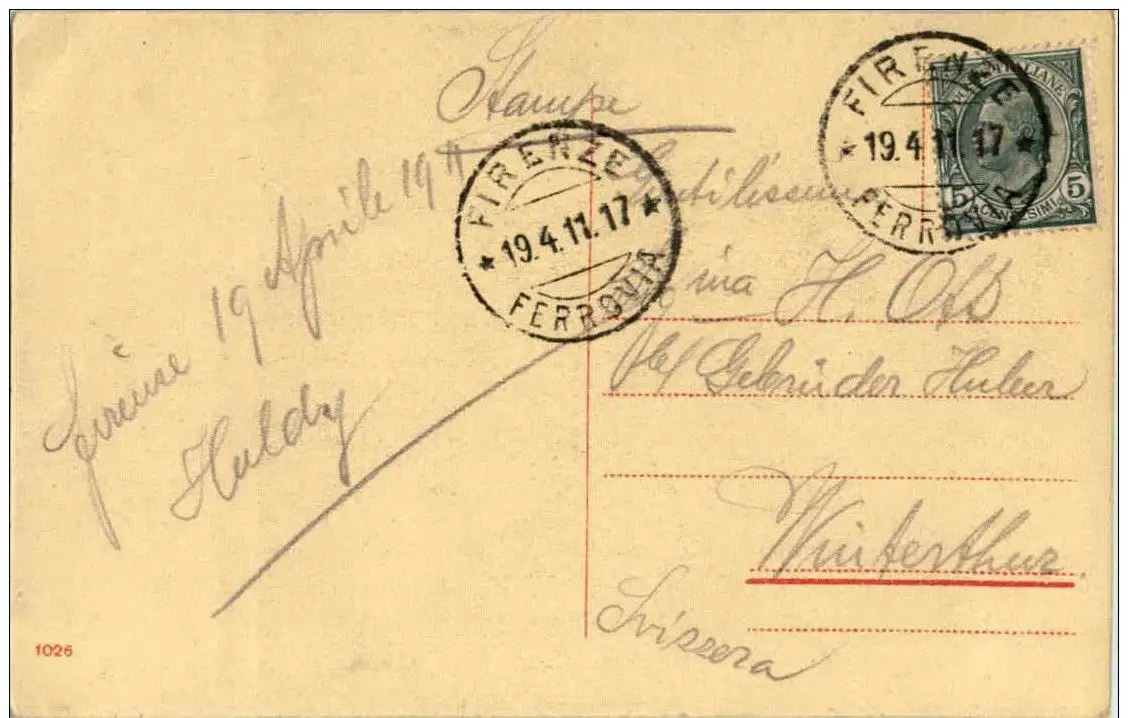 Stampe
Firenze 19 Aprile 1911
Huldy
FIRENZE
19.4.11.17
FERROVIA
FIRENZE
19.4.11.17
FERROVIA
POSTE ITALIANE
5 CENTESIMI 5
Gentilissima
Sig.ina H. Ott
Gebrüder Huber
Winterthur.
Svizzera
1026